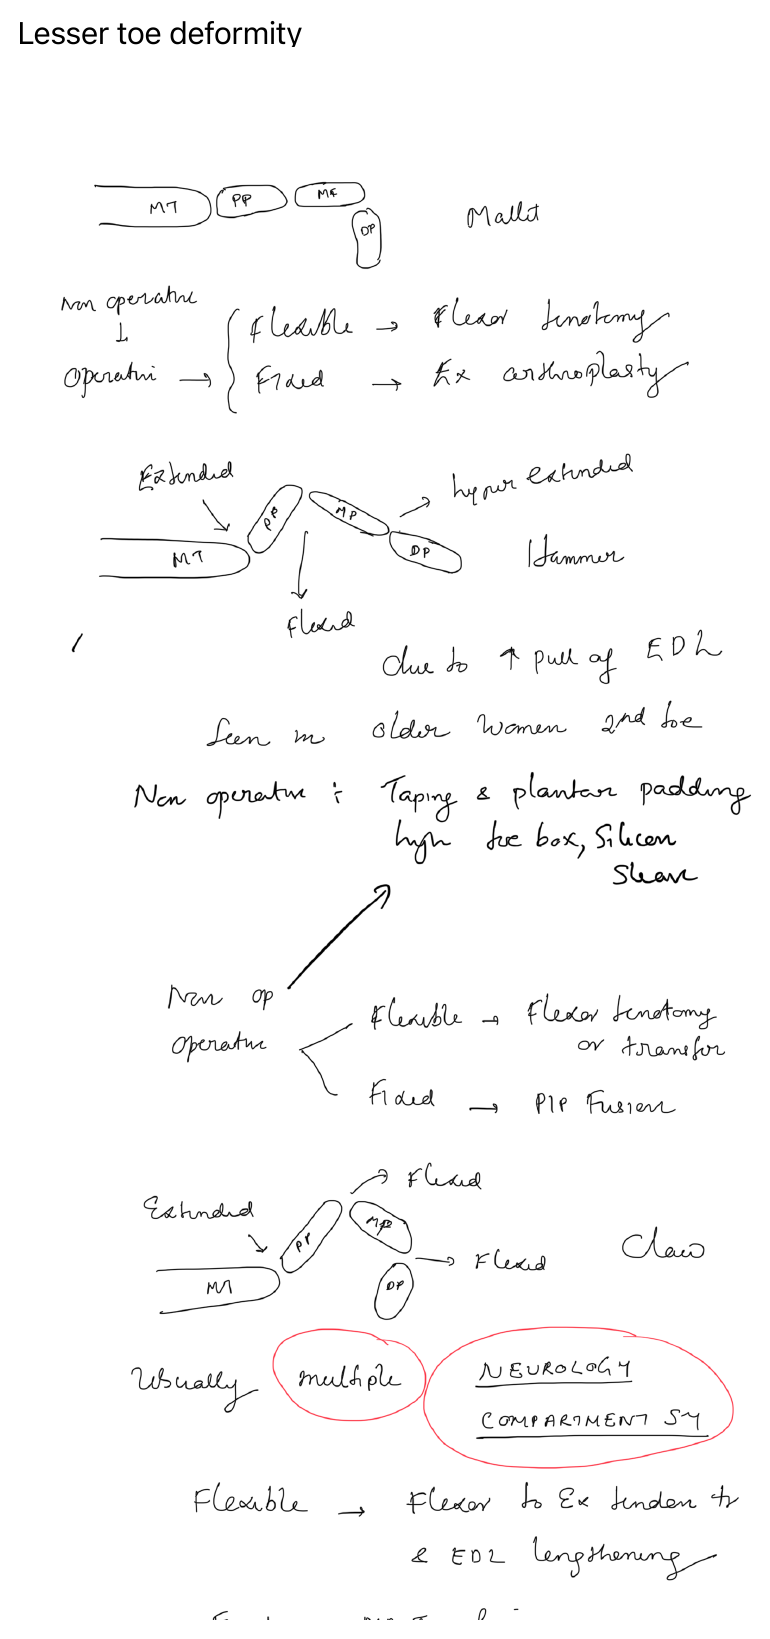 Lesser toe deformity
MT PP MP DP
Mallet
Non operative
↓
Operative → { Flexible → Flexor tenotomy
Fixed → Ex arthroplasty
Extended
hyper extended
MT PP MP DP
Hammer
Flexed
due to ↑ pull of EDL
Seen in older women 2nd toe
Non operative : Taping & plantar padding
high toe box, Silicon
Sleave
Non op
Operative
Flexible → Flexor tenotomy
or transfer
Fixed → PIP Fusion
Flexed
Extended
MT PP MP DP
Flexed
Claw
Usually multiple
NEUROLOGY
COMPARTMENT SY
Flexible → Flexor to Ex tendon tr
& EDL lengthening